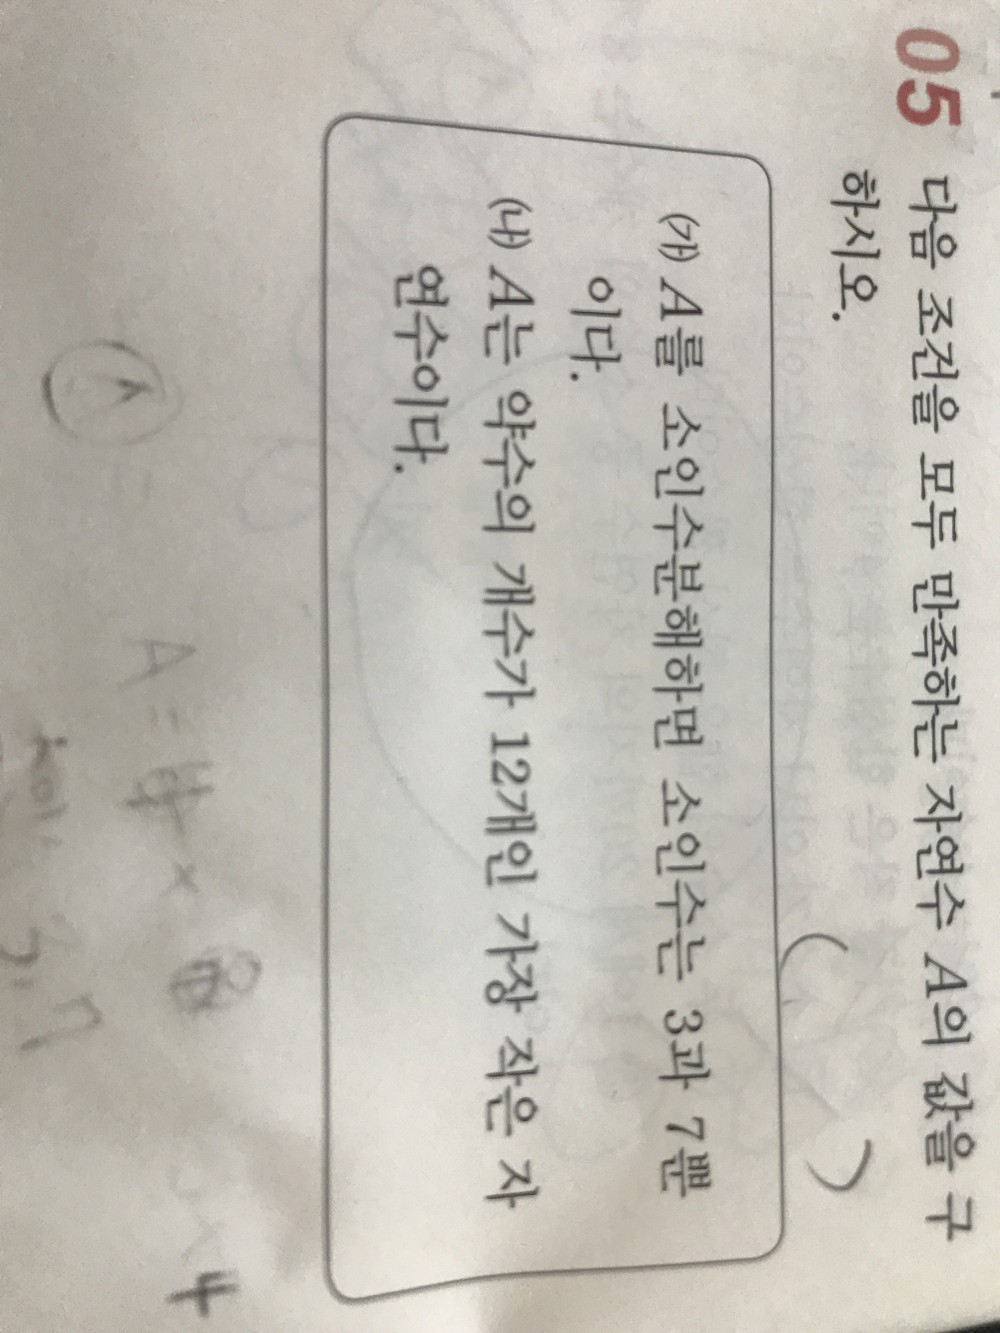 05 다음 조건을 모두 만족하는 자연수 A의 값을 구
하시오.
( )
㈎ A를 소인수분해하면 소인수는 3과 7뿐
이다.
㈏ A는 약수의 개수가 12개인 가장 작은 자
연수이다.
A =
3, 7
4